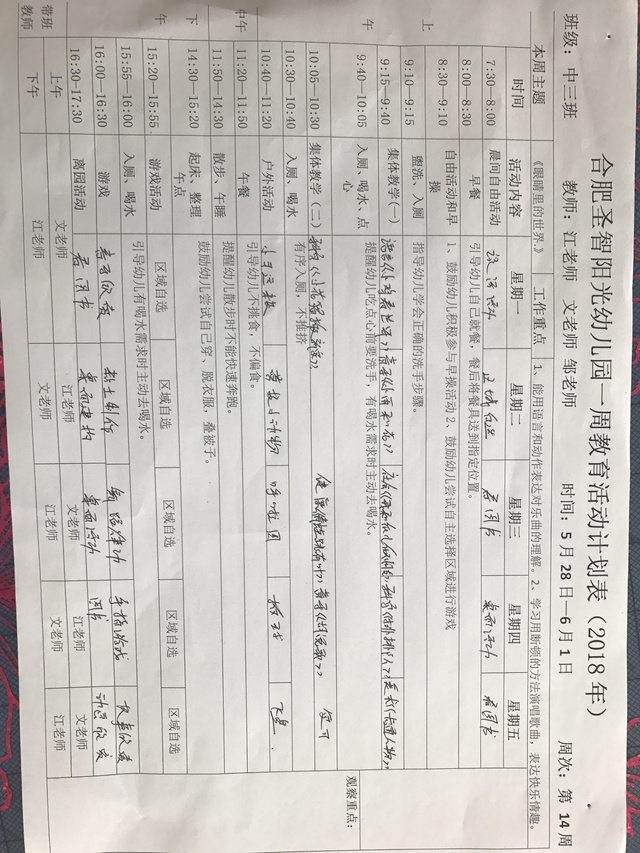 合肥圣智阳光幼儿园一周教育活动计划表（2018 年）
班级：中三班 教师：江老师 文老师 邹老师 时间：5 月 28 日—6 月 1 日 周次：第 14 周
本周主题 《眼睛里的世界》 工作重点 1、能用语言和动作表达对乐曲的理解。2、学习用断顿的方法演唱歌曲，表达快乐情趣。
时间 活动内容 星期一 星期二 星期三 星期四 星期五
上午
7:30—8:00 晨间自由活动 看图书 桌面活动 看图书
8:00—8:30 早餐 引导幼儿自己就餐，餐后将餐具送到指定位置。
8:30—9:10 自由活动和早操 1、鼓励幼儿积极参与早操活动 2、鼓励幼儿尝试自主选择区域进行游戏
9:10—9:15 盥洗、入厕 指导幼儿学会正确的洗手步骤。
9:15—9:40 集体教学（一）
9:40—10:05 入厕、喝水、点心 提醒幼儿吃点心前要洗手，有喝水需求时主动去喝水。
10:05—10:30 集体教学（二）
10:30—10:40 入厕、喝水 有序入厕，不推挤
10:40—11:20 户外活动 呼啦圈
中午
11:20—11:50 午餐 引导幼儿不挑食，不偏食。
11:50—14:30 散步、午睡 提醒幼儿散步时不能快速奔跑。
下午
14:30—15:20 起床、整理午点 鼓励幼儿尝试自己穿、脱衣服，叠被子。
15:20—15:55 游戏活动 区域自选 区域自选 区域自选 区域自选 区域自选
15:55—16:00 入厕、喝水 引导幼儿有喝水需求时主动去喝水。
16:00—16:30 游戏 黏土制作 手指游戏
16:30—17:30 离园活动 看图书 桌面建构 桌面活动 图书
带班教师 上午 文老师 江老师 文老师 江老师 文老师
下午 江老师 文老师 江老师 文老师 江老师
观察重点：